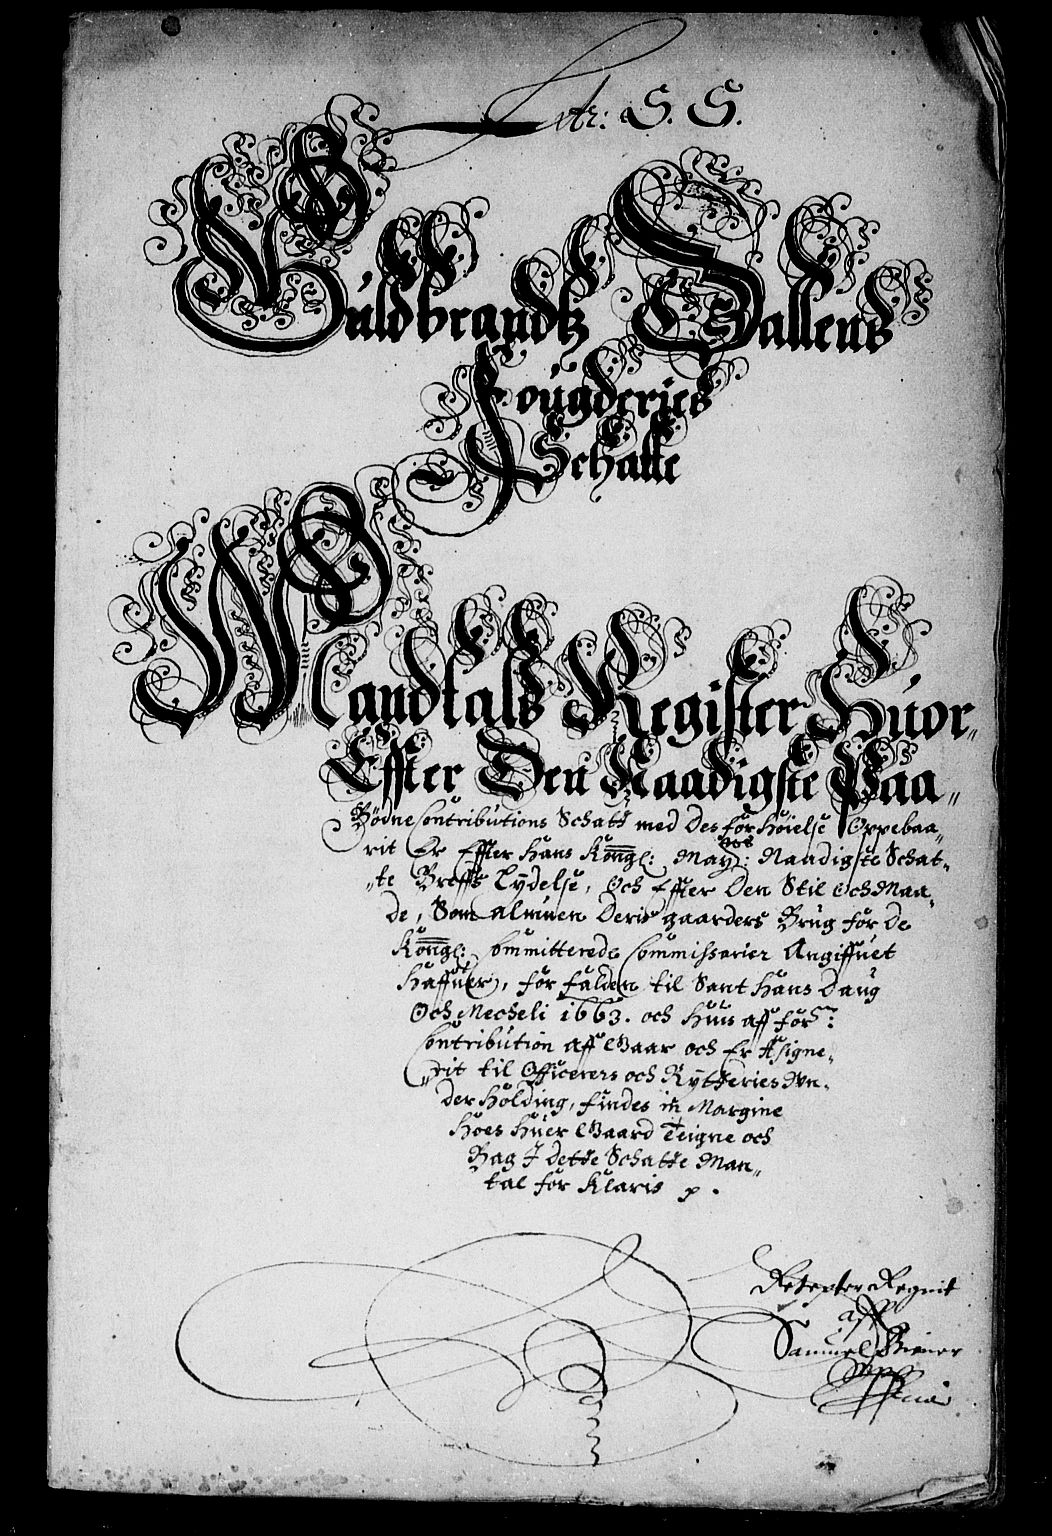 Litr: S. S.
Guldbrandtz Dallens
Fougderies
Schatte
Mandtals Register Huor„
Effter Den Naadigste Paa„
Bödne Contributions Schatt med des forhöielse Oppebaa„
rit Er Effter Hans Kongl: May: Naadigste Schat„
„te Breffs Lydelse, Och Effter Den Stil och Maa„
de, Som almuen deris gaarders Brug for de
Kongl: Committerede Commissarier Angiffuet
Haffuer, for falden til Sant Hans Daug
Och Mecheli 1663. och Huis aff for:
Contribution aff Gaar och Er Asigne„
„rit til Officerers och Rytteries Un„
der Holding, findes in Margine
Hoes Huer Gaard Teigne och
Bag I dette Schatte Man„
tal for Klaris p.
aff
Samuel